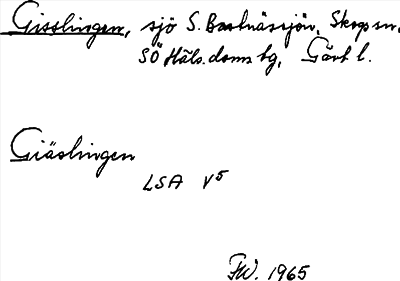 Gisslingen, sjö S. Bastnässjön, Skogs sn,
SÖ Häls. doms tg, Gävl l.
Giäslingen
LSA V5
FW. 1965